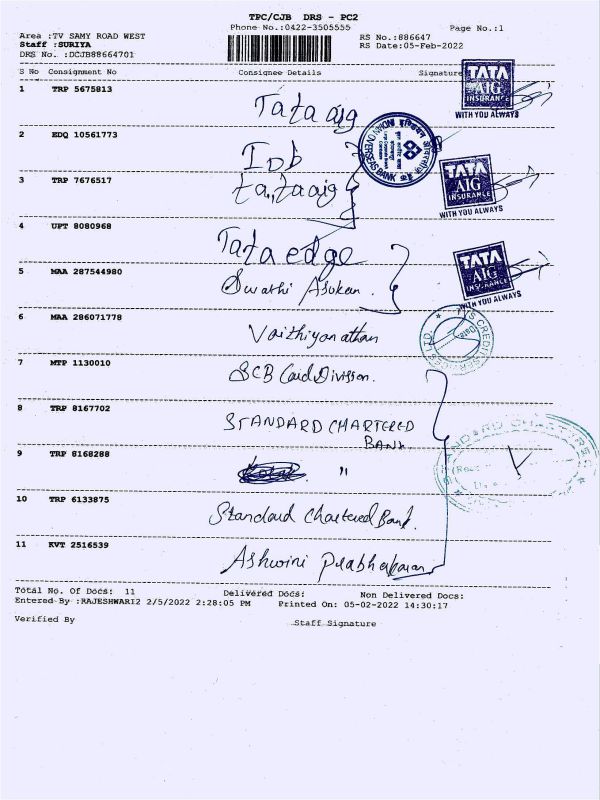 TPC/CJB DRS - PC2
Phone No.:0422-3505555
Page No.:1
Area :TV SAMY ROAD WEST
RS No.:886647
Staff :SURIYA
RS Date:05-Feb-2022
DRS No. :DCJB88664701
S No Consignment No Consignee Details Signature
1 TRP 5675813 Tata aig
TATA AIG INSURANCE
WITH YOU ALWAYS
2 EDQ 10561773 Iob
INDIAN OVERSEAS BANK
3 TRP 7676517 tata aig
TATA AIG INSURANCE
WITH YOU ALWAYS
4 UPT 8080968 Tata edge
5 MAA 287544980 Swathi Asokan
TATA AIG INSURANCE
WITH YOU ALWAYS
6 MAA 286071778 Vaithiyanathan
CREDIT SERVICES LTD.
7 MTP 1130010 SCB Card Division.
8 TRP 8167702 STANDARD CHARTERED BANK
STANDARD CHARTERED
9 TRP 8168288 "
10 TRP 6133875 Standard Chartered Bank.
11 KVT 2516539 Ashwini Prabhakaran
Total No. Of Docs: 11 Delivered Docs: Non Delivered Docs:
Entered By :RAJESHWARI2 2/5/2022 2:28:05 PM Printed On: 05-02-2022 14:30:17
Verified By Staff Signature